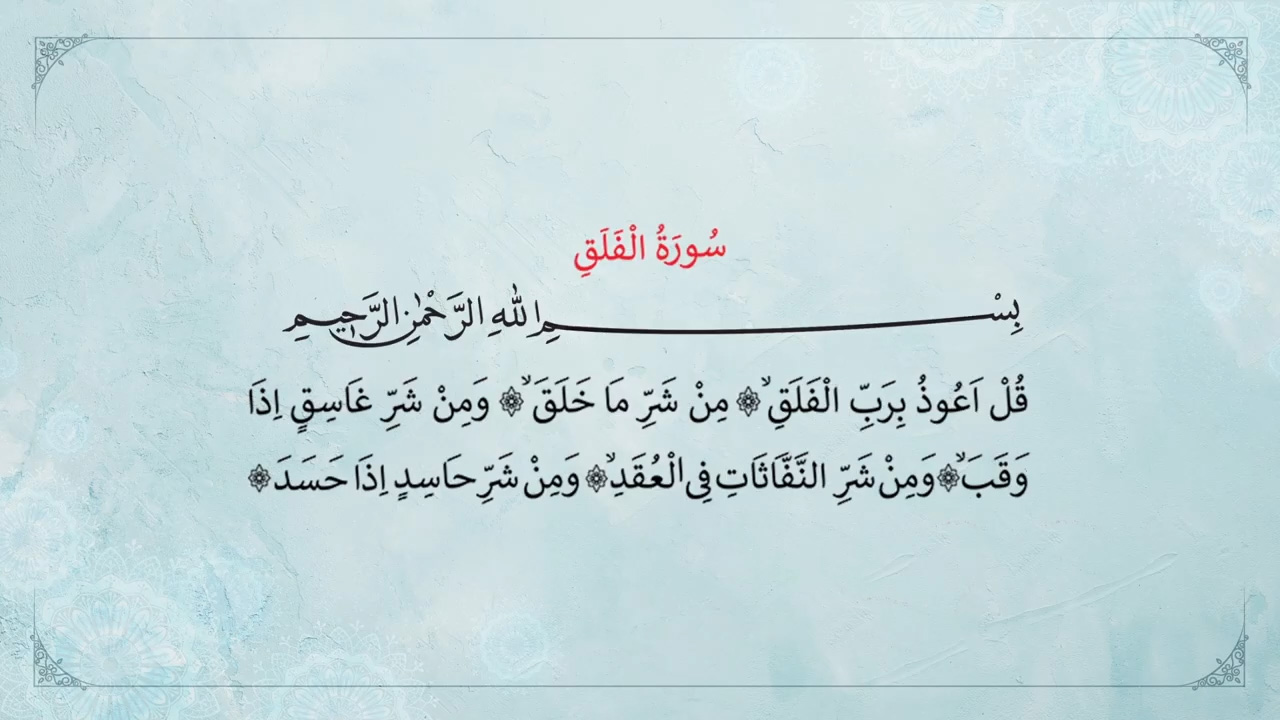 سُورَةُ الْفَلَقِ
بِسْمِ اللهِ الرَّحْمٰنِ الرَّحِيمِ
قُلْ اَعُوذُ بِرَبِّ الْفَلَقِۙ ۞ مِنْ شَرِّ مَا خَلَقَۙ ۞ وَمِنْ شَرِّ غَاسِقٍ اِذَا
وَقَبَۙ ۞ وَمِنْ شَرِّ النَّفَّاثَاتِ فِي الْعُقَدِۙ ۞ وَمِنْ شَرِّ حَاسِدٍ اِذَا حَسَدَ ۞